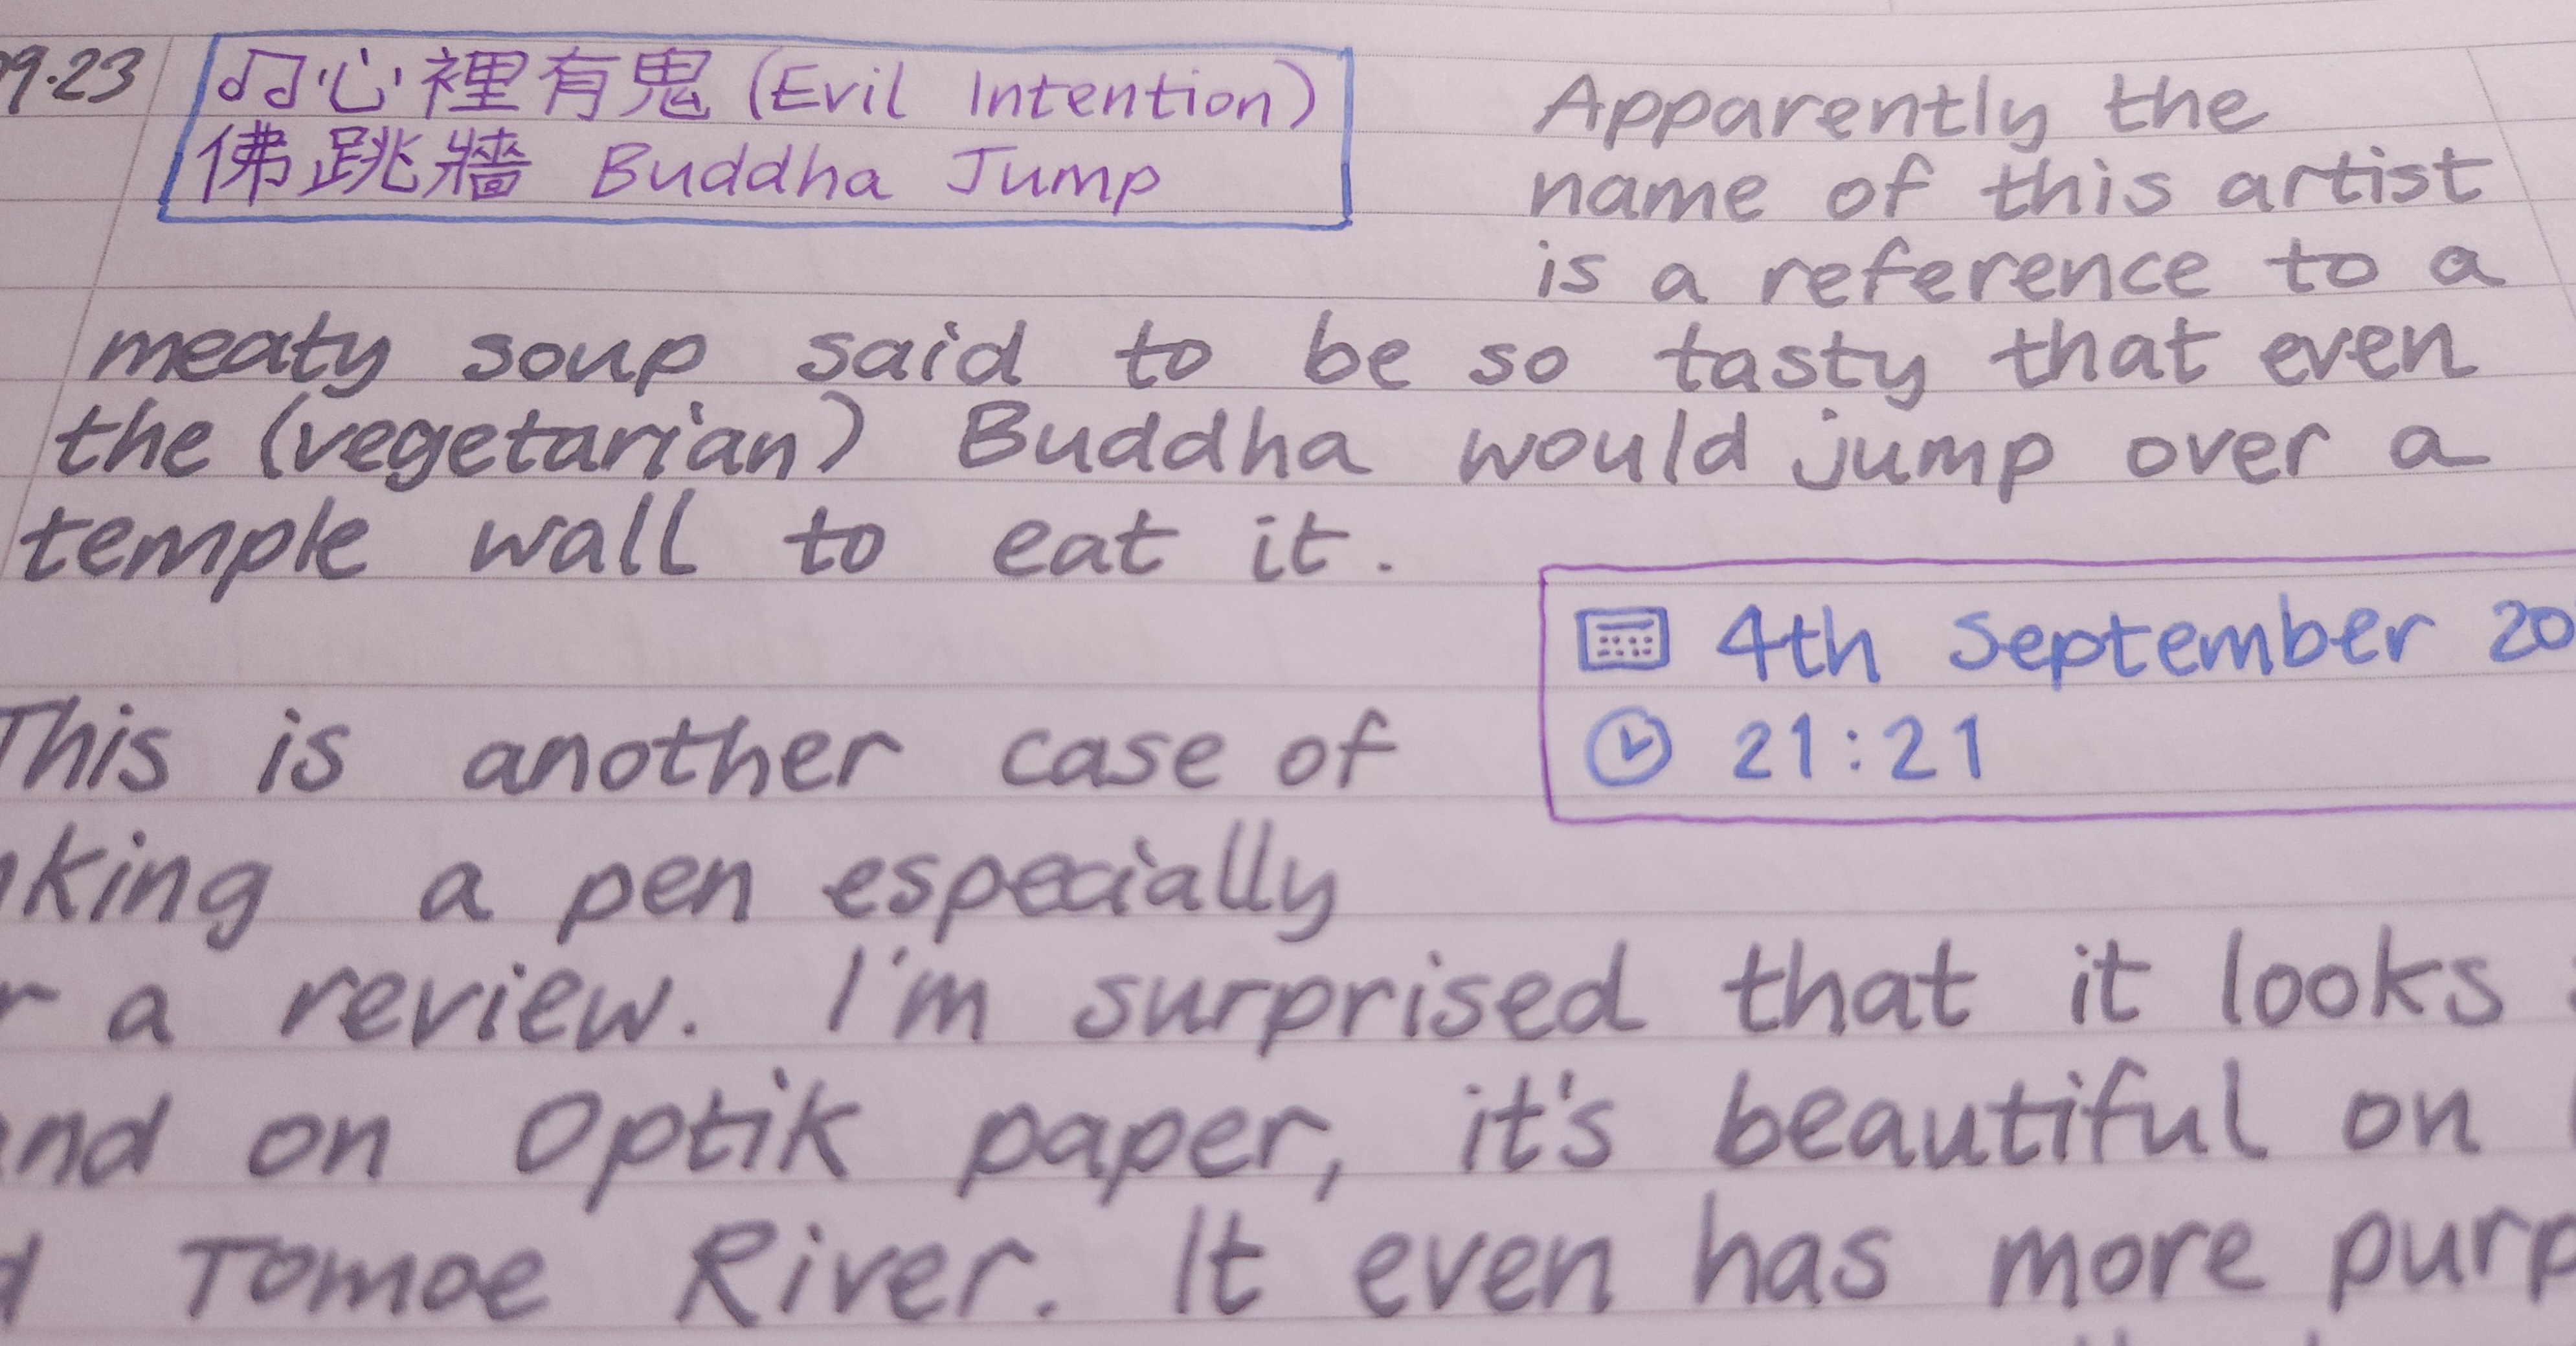 09.23
♫心裡有鬼 (Evil Intention)
佛跳牆 Buddha Jump
Apparently the
name of this artist
is a reference to a
meaty soup said to be so tasty that even
the (vegetarian) Buddha would jump over a
temple wall to eat it.
4th September 20
21:21
This is another case of
a pen especially
a review. I'm surprised that it looks
on Optik paper, it's beautiful on
Tomoe River. It even has more